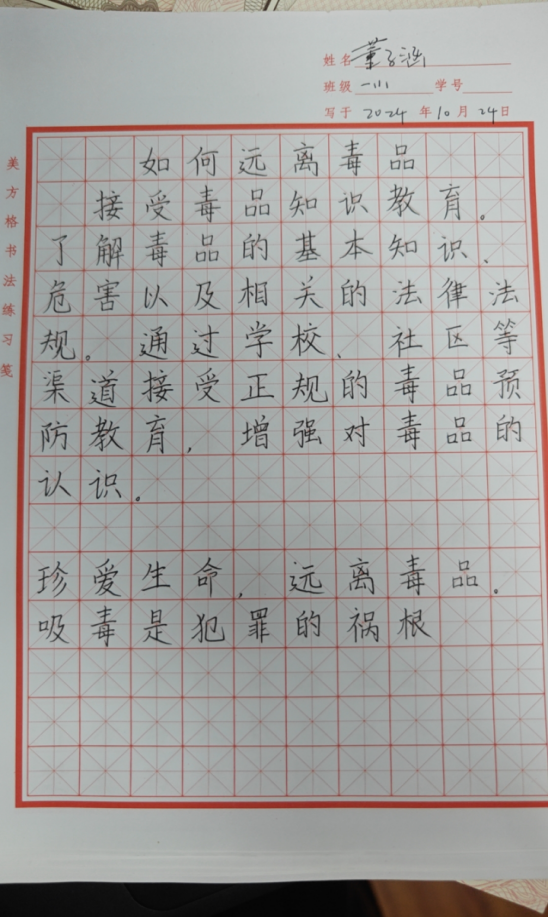 姓名 董子涵
班级 一小 学号
写于 2024 年 10 月 24 日
美方格书法练习笺
如何远离毒品
接受毒品知识教育。
了解毒品的基本知识、
危害以及相关的法律法
规。通过学校、社区等
渠道接受正规的毒品预
防教育,增强对毒品的
认识。
珍爱生命,远离毒品。
吸毒是犯罪的祸根